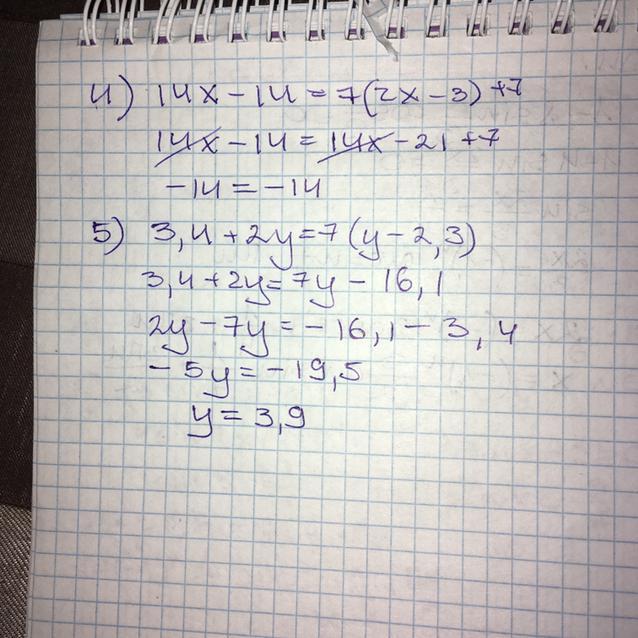 4) 14x - 14 = 7(2x - 3) + 7
14x - 14 = 14x - 21 + 7
-14 = -14
5) 3,4 + 2y = 7(y - 2,3)
3,4 + 2y = 7y - 16,1
2y - 7y = -16,1 - 3,4
-5y = -19,5
y = 3,9